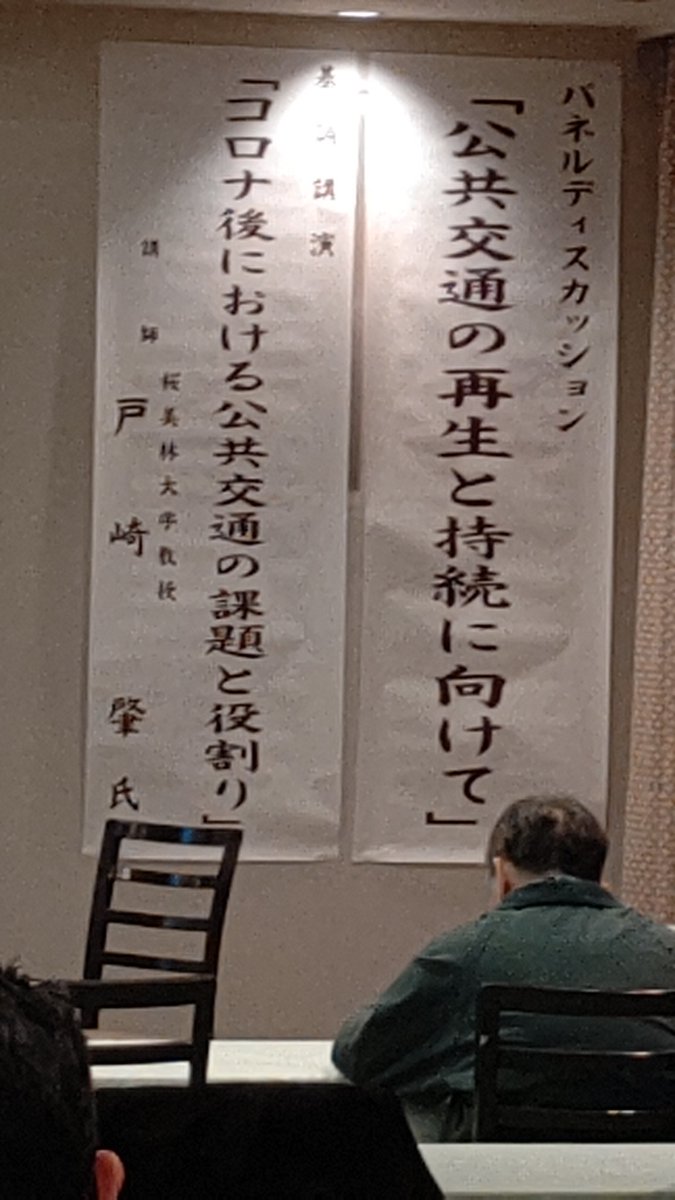 パネルディスカッション
「公共交通の再生と持続に向けて」
基調講演
「コロナ後における公共交通の課題と役割り」
講師
桜美林大学教授
戸崎肇氏